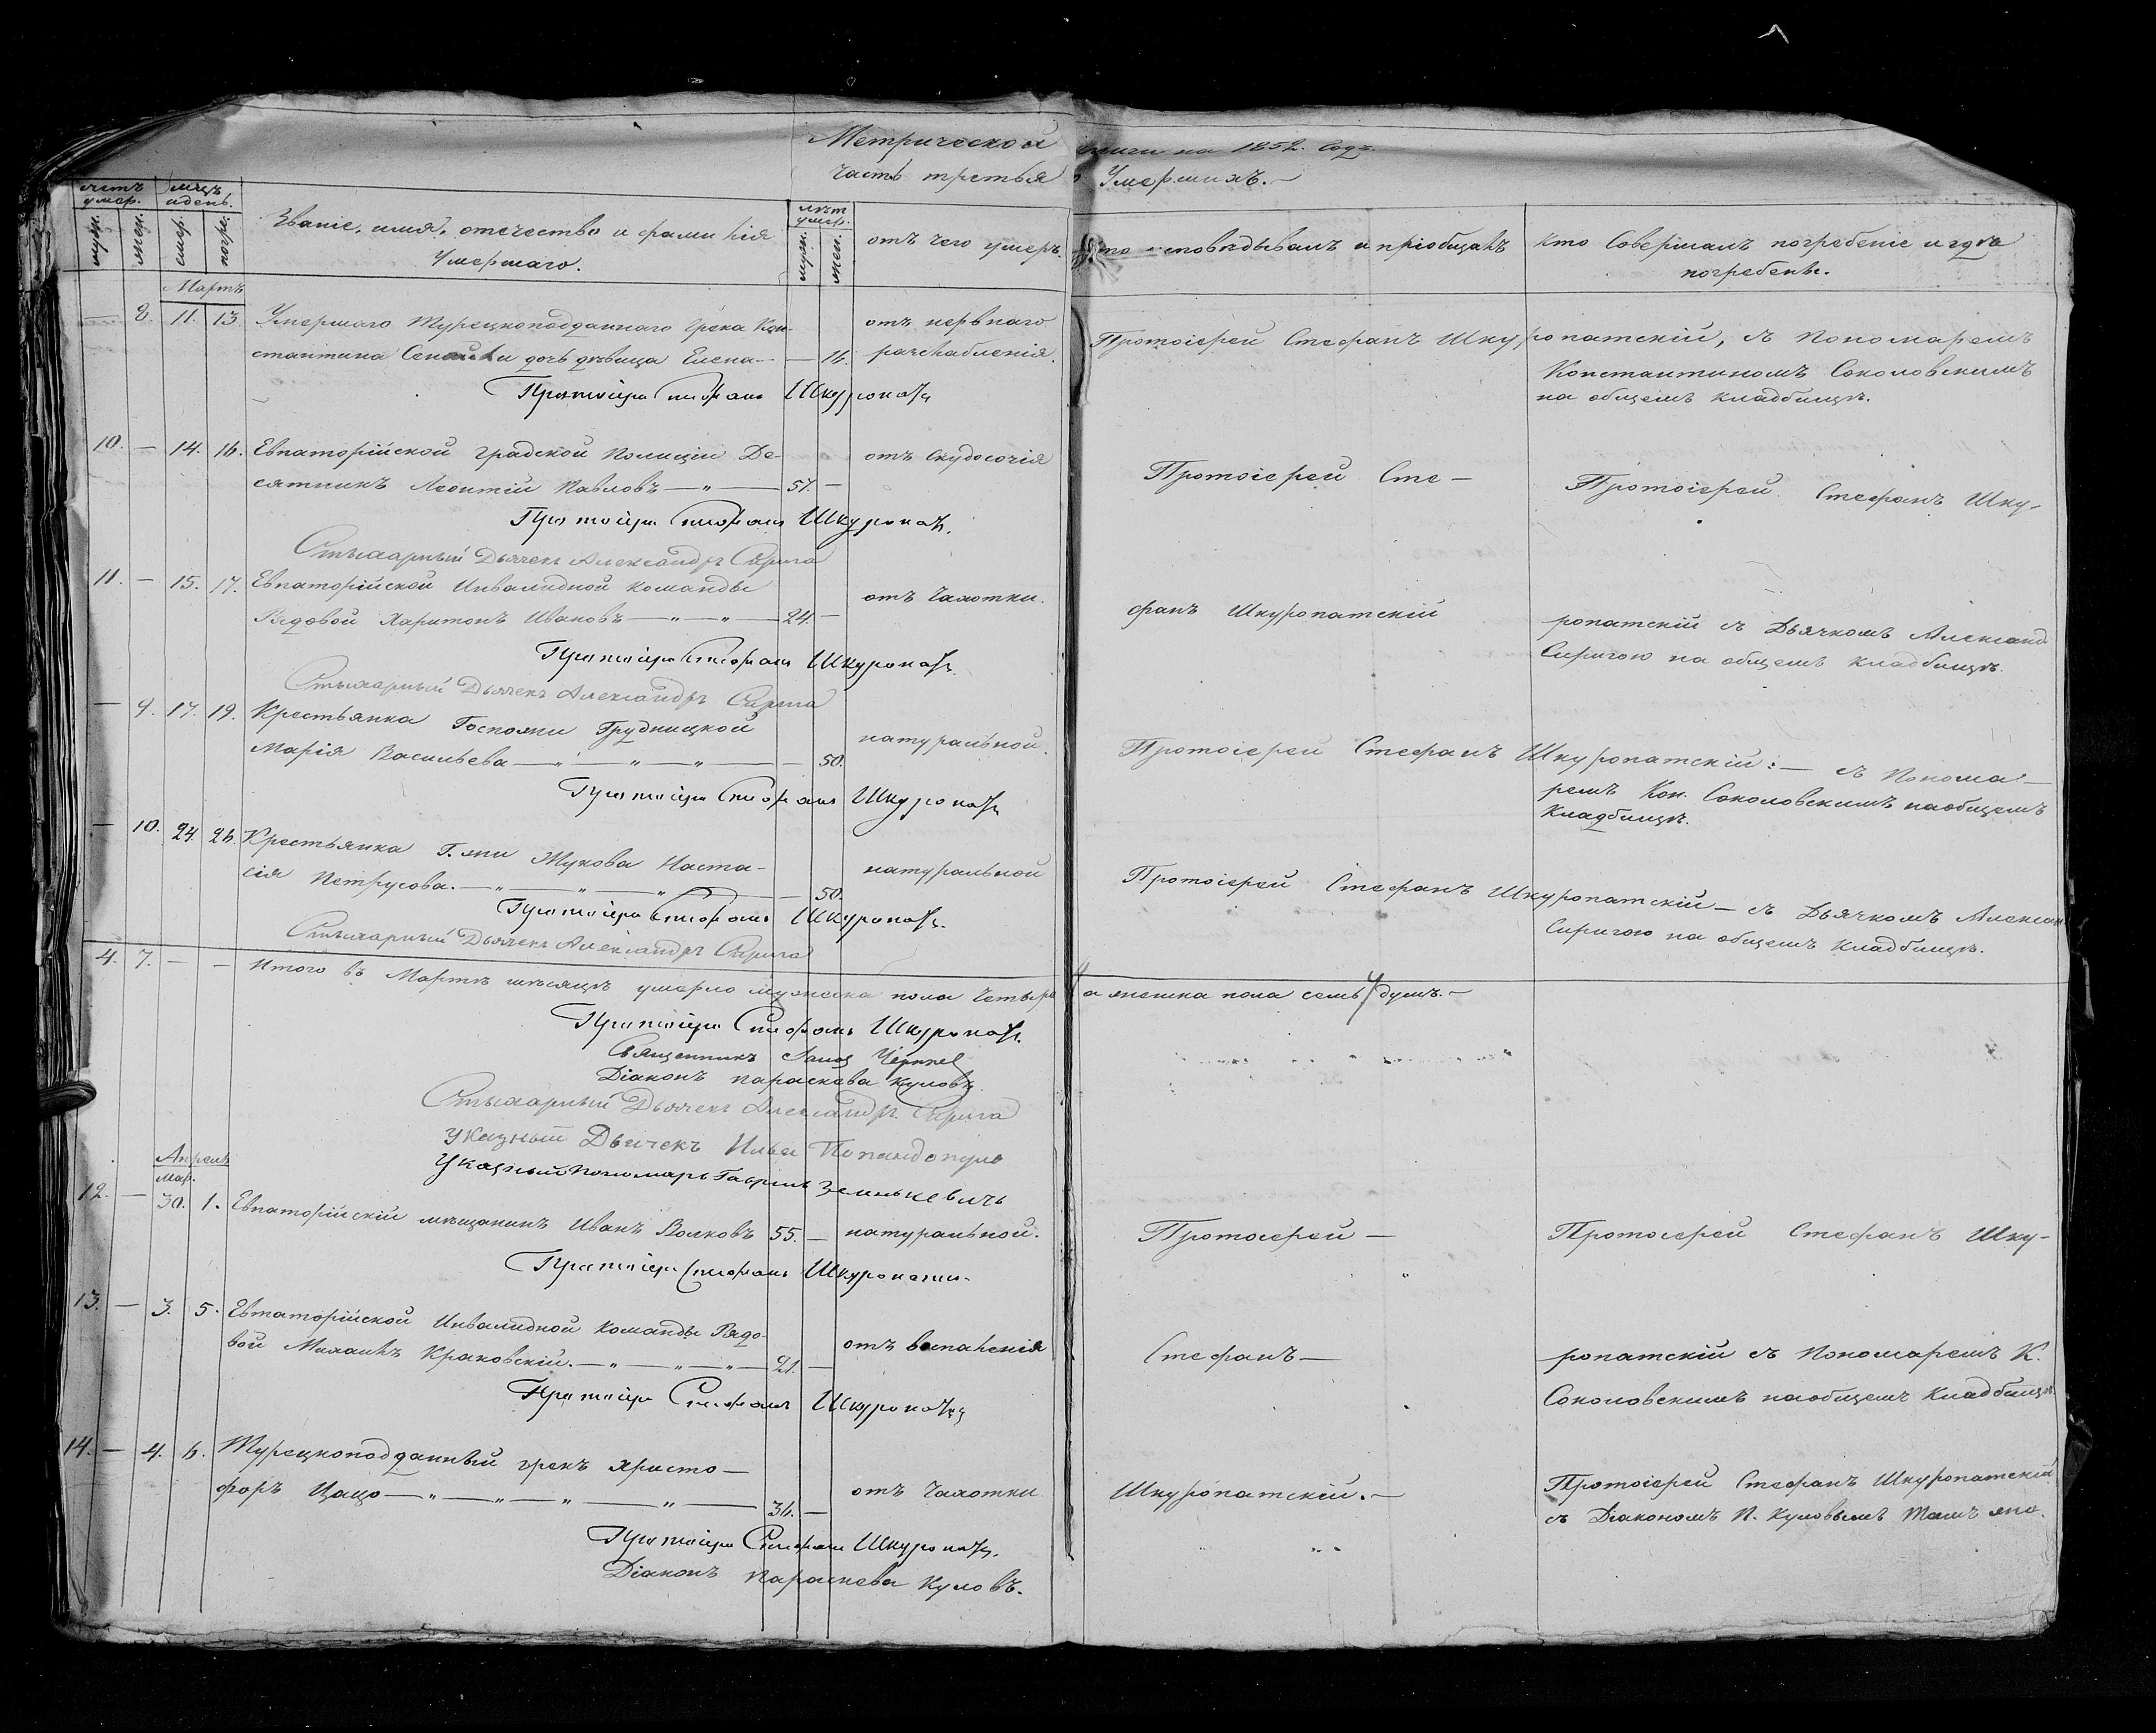 Метрической книги на 1852. Годъ.
Часть третья о Умершихъ.—
счетъ умер. мцъ и день. Званіе, имя, отечество и фамилія Умершаго. лѣт умер. отъ чего умеръ. Кто исповѣдывалъ и пріобщалъ Кто Совершалъ погребеніе и гдѣ погребены.
муж. жен. смер. погре. муж. жен.
Мартъ
— 8. 11. 13. Умершаго Турецкоподданнаго Грека Кон- отъ нервнаго Протоіерей Стефанъ Шкуропатскій, съ Пономаремъ
стантина дочь дѣвица Елена — — 16. разслабленія. Константиномъ Соколовскимъ
Протоіерей Стефанъ Шкуропатс. на общемъ кладбищѣ.
10. — 14. 16. Евпаторійской градской Полиціи Де- отъ Скудосочія Протоіерей Сте— Протоіерей Стефанъ Шку-
сятникъ Леонтій Павловъ —"— 57. —
Протоіерей Стефанъ Шкуропатс.
Стихарный Дьячекъ Александръ Сирига
11. — 15. 17. Евпаторійской Инвалидной команды отъ Чахотки. фанъ Шкуропатскій ропатскій съ Дьячкомъ Александ
Рядовой Харитонъ Ивановъ —"—"— 24. — Сиригою на общемъ кладбищѣ.
Протоіерей Стефанъ Шкуропатс.
Стихарный Дьячекъ Александръ Сирига
— 9. 17. 19. Крестьянка Госпожи Грудницкой натуральной. Протоіерей Стефанъ Шкуропатскій:— съ Понома—
Марія Васильева —"—"—"— — 50. ремъ Кон. Соколовскимъ на общемъ
Протоіерей Стефанъ Шкуропатс. Кладбищѣ.
— 10. 24. 26. Крестьянка Г.жи Жукова Наста- натуральной Протоіерей Стефанъ Шкуропатскій — съ Дьячкомъ Алексан
сія Петрусова. —"—"—"— — 50. Сиригою на общемъ Кладбищѣ.
Протоіерей Стефанъ Шкуропатс.
Стихарный Дьячекъ Александръ Сирига
4. 7. — — Итого въ Мартѣ мѣсяцѣ умерло мужеска пола Четыре/ а женска пола семь/ душъ.—
Протоіерей Стефанъ Шкуропатс.
Священникъ
Діаконъ Параскева Куловъ.
Стихарный Дьячекъ Александръ Сирига
Указный Дьячекъ Илья Попандопуло
Указный Пономарь Гавріилъ Зенькевичъ
Апрель
Мар.
12. — 30. 1. Евпаторійскій мѣщанинъ Иванъ Волковъ 55. — натуральной. Протоіерей — Протоіерей Стефанъ Шку-
Протоіерей Стефанъ Шкуропатс.
13. — 3. 5. Евпаторійской Инвалидной Команды Рядо- отъ воспаленія Стефанъ — ропатскій съ Пономаремъ К.
вой Михаилъ Краковскій. —"—"—"— 21. — Соколовскимъ на общемъ Кладбищѣ
Протоіерей Стефанъ Шкуропатс.
14. — 4. 6. Турецкоподданный грекъ Христо— отъ Чахотки Шкуропатскій.— Протоіерей Стефанъ Шкуропатскій
форъ Цацо —"—"—"—"— 36. — съ Діакономъ П. Куловымъ Тамъ же.
Протоіерей Стефанъ Шкуропатс.
Діаконъ Параскева Куловъ.